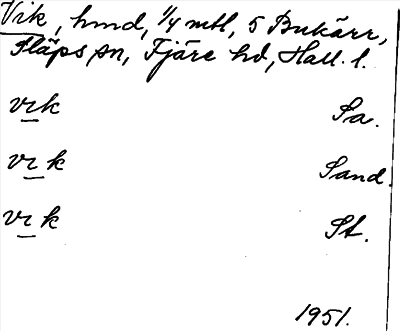 Vik, hmd, 1/4 mtl, 5 Bukärr,
Släps sn, Fjäre hd, Hall. l.
vik Sa.
vik Sand.
vik St.
1951.